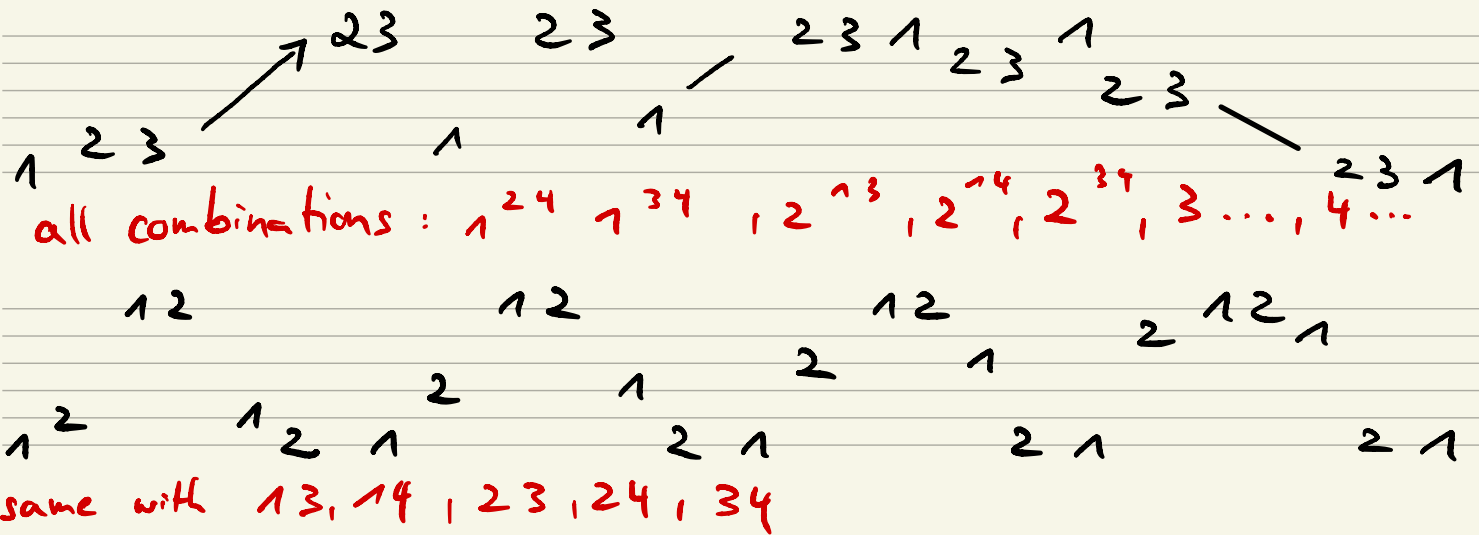 1 2 3 2 3 1 2 3 1 2 3 1 2 3 1 2 3 2 3 1
all combinations : 1²⁴ 1³⁴ , 2¹³ , 2¹⁴ , 2³⁴ , 3 ... , 4 ...
1 2 1 2 1 2 1 2 1 2 1 2 1 2 1 2 1 2 1 2 1 2 1 2 1
same with 13, 14 , 23 , 24 , 34